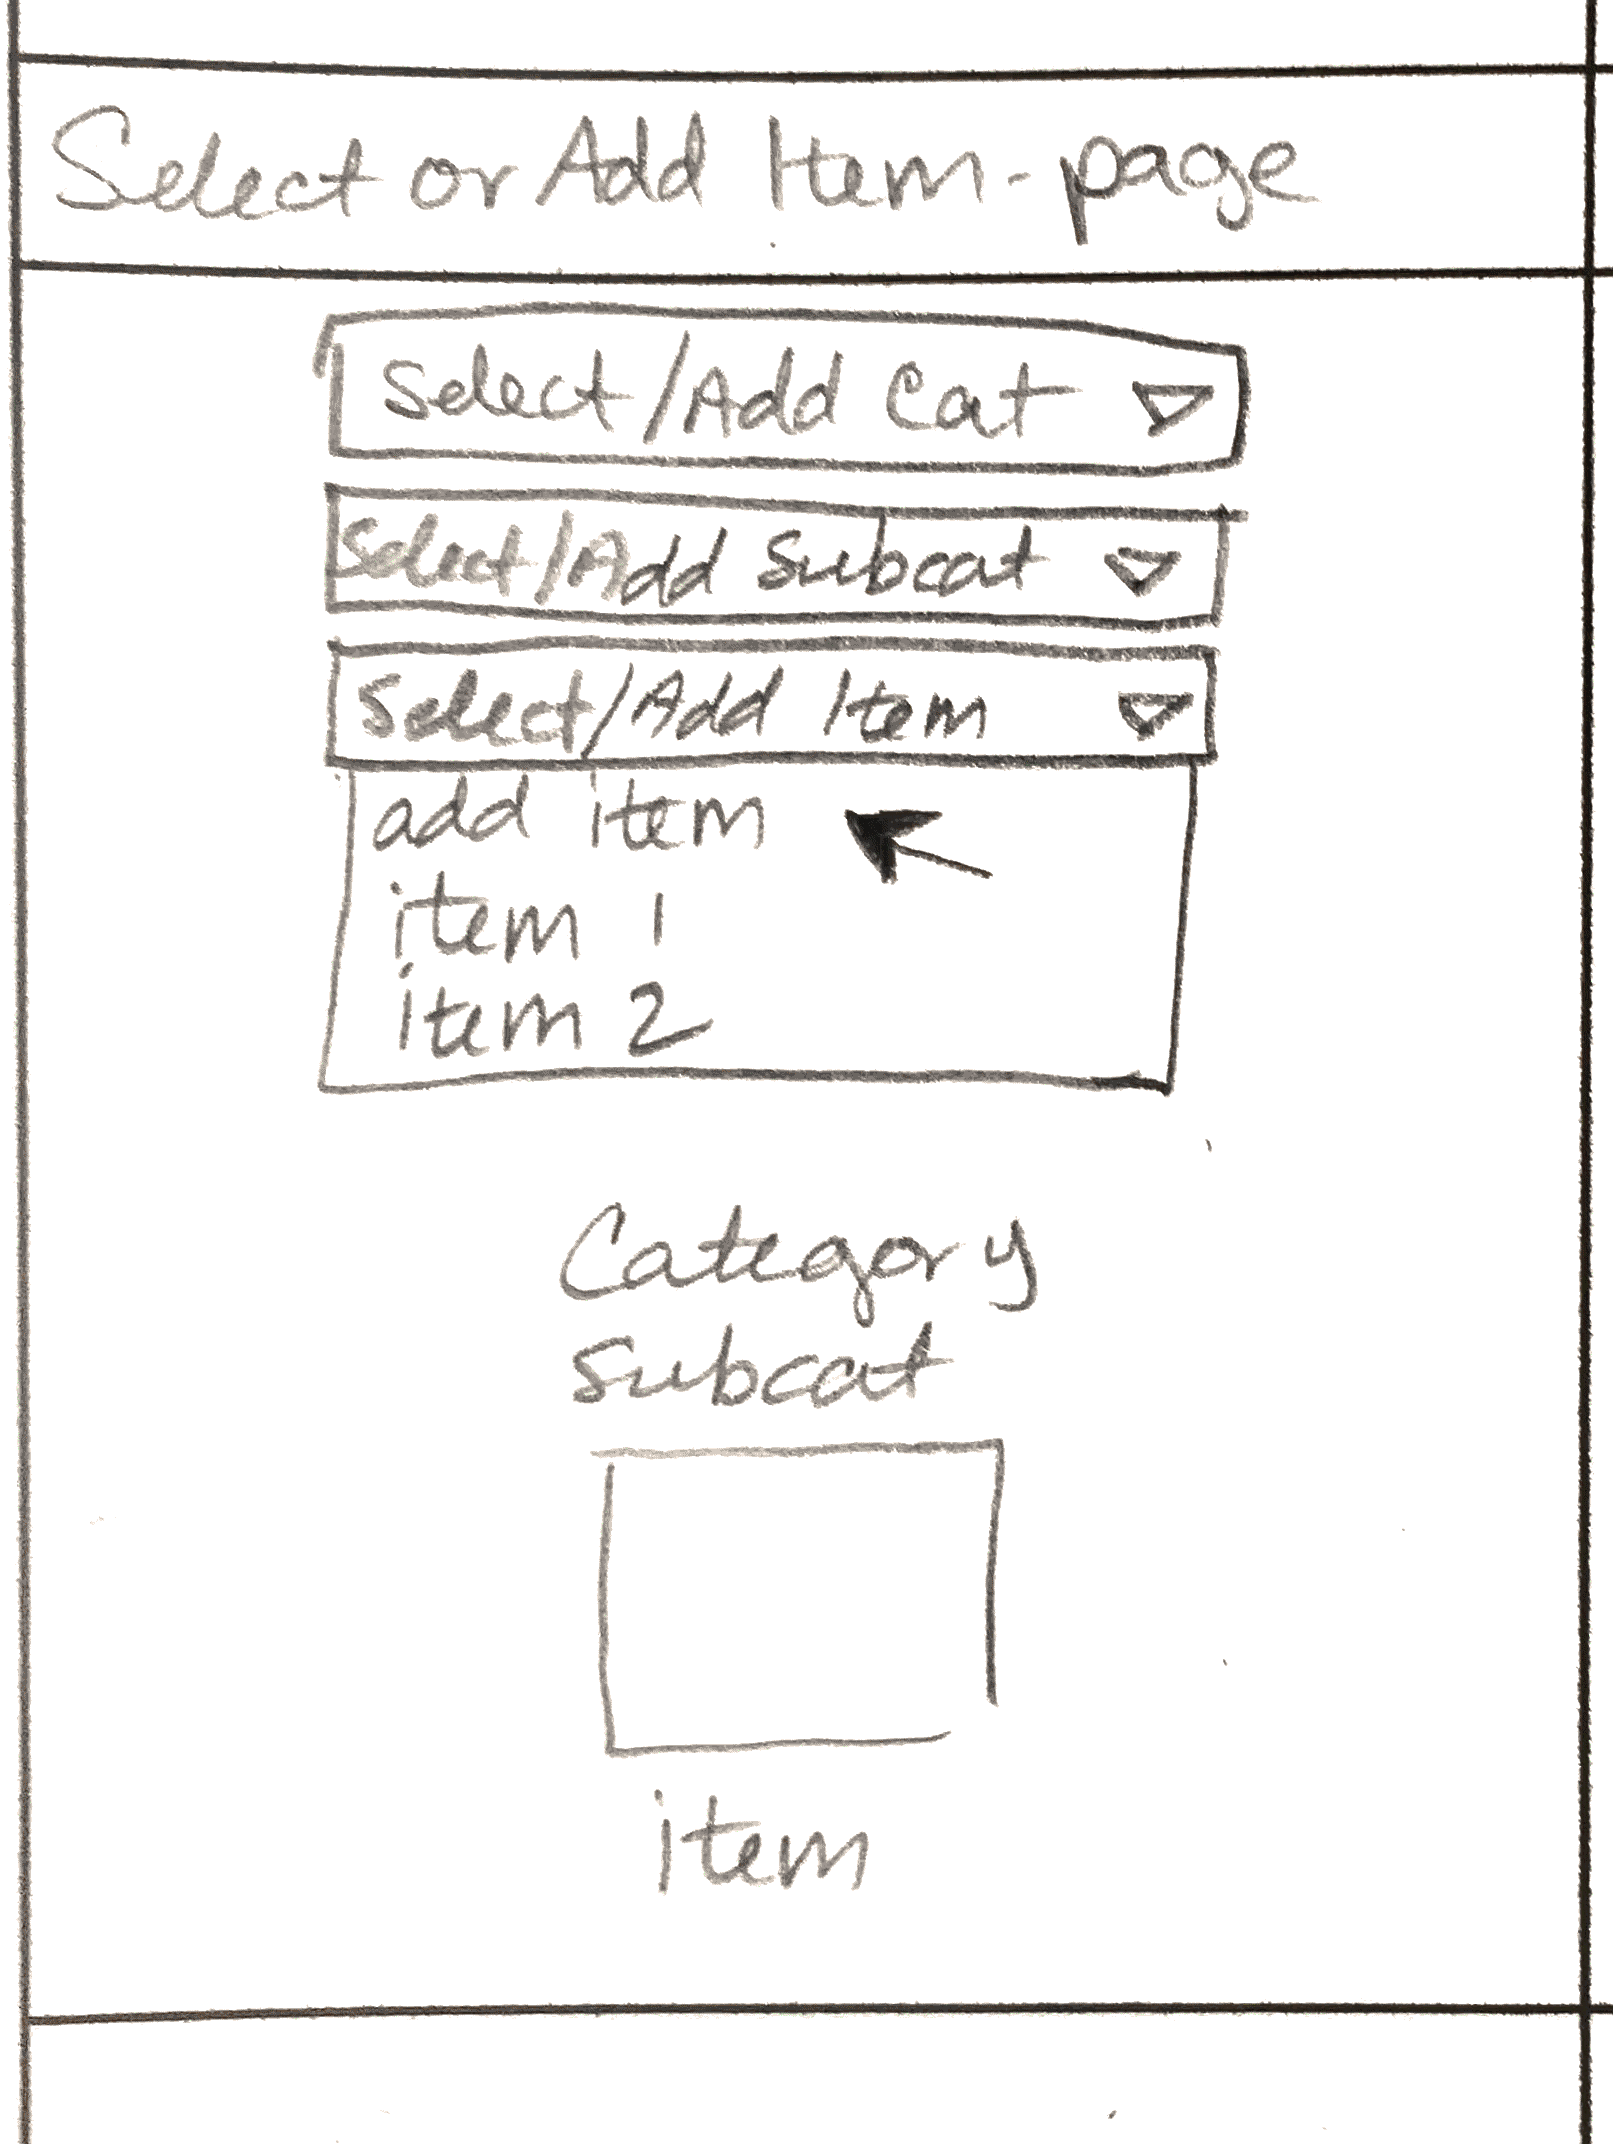 Select or Add Item-page
Select/Add Cat
Select/Add Subcat
Select/Add Item
add item
item 1
item 2
Category
Subcat
item